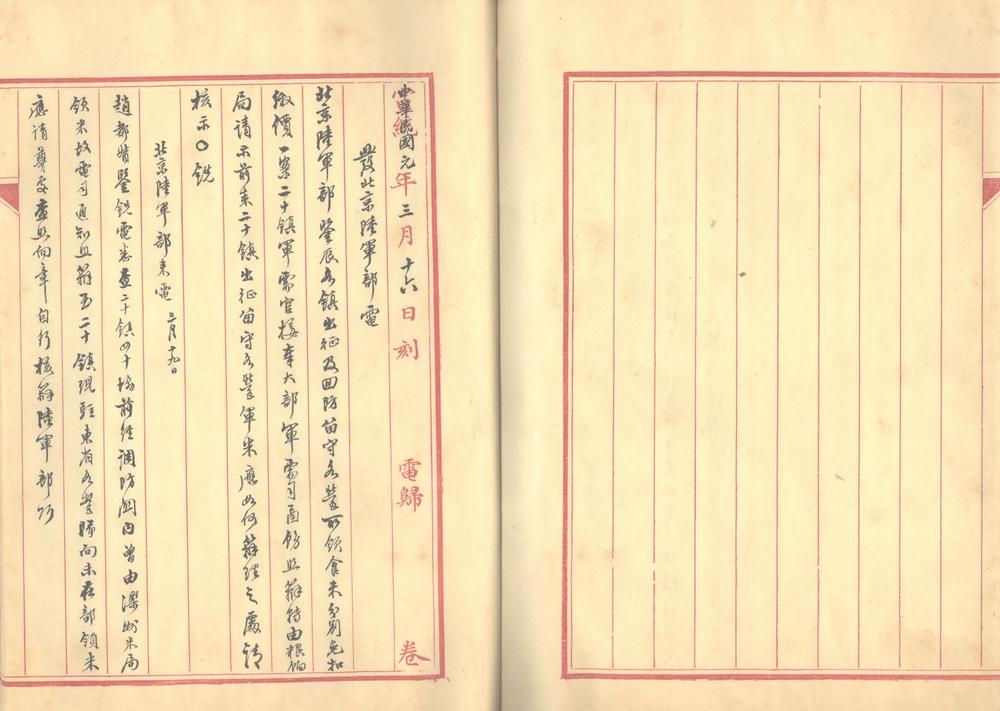 中華民國元年三月十六日刻 電歸 卷
發北京陸軍部電
北京陸軍部鑒辰各鎮出征及回防留守各營所領食米分別免扣
繳價一案二十鎮軍需官接奉大部軍需司函飭照辦特由糧餉
局請示前來二十鎮出征留守各營軍米應如何辦法之處請
核示〇銑
北京陸軍部來電 三月十九日
趙都督鑒銑電悉查二十鎮四十協前經調防關內曾由灤州米局
領米故電司通知照辦至二十鎮現駐東省各營隊向未在部領米
應請尊處查照向章自行核辦陸軍部